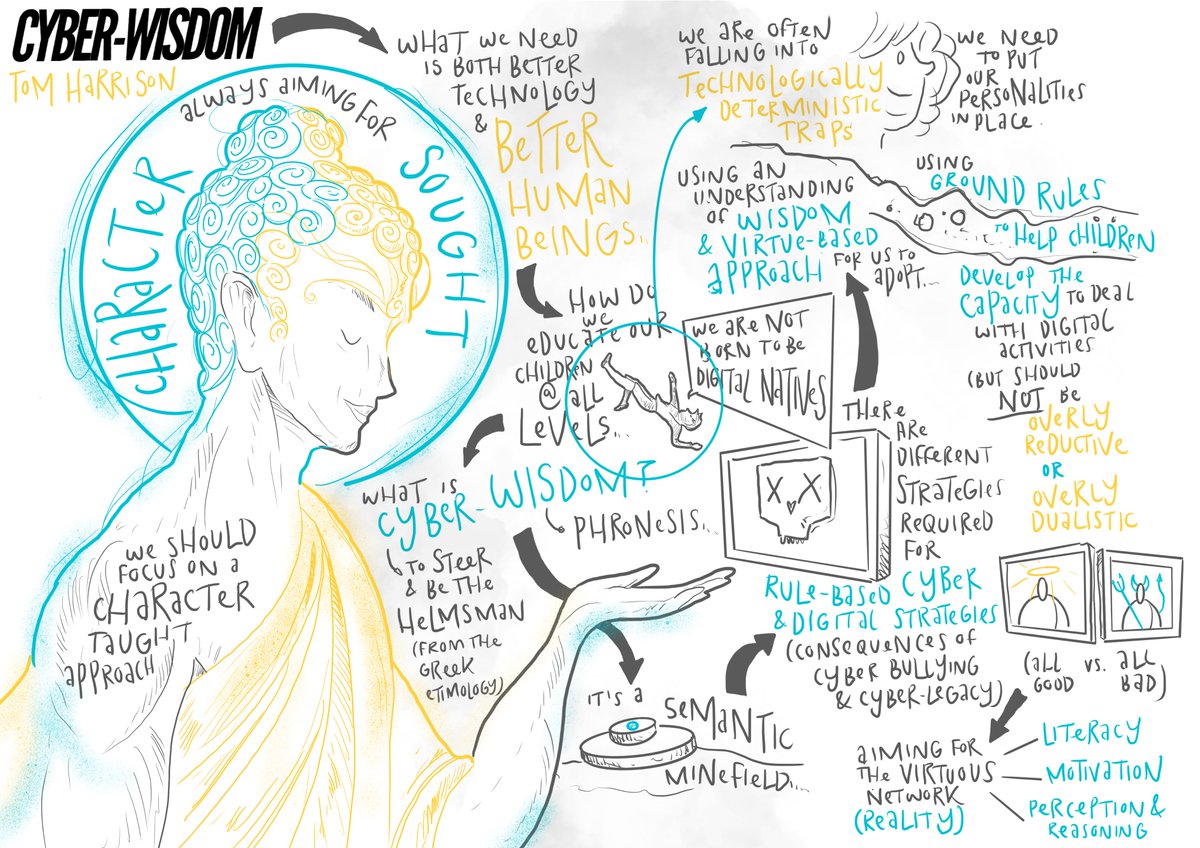 CYBER-WISDOM
TOM HARRISON
ALWAYS AIMING FOR
CHARACTER
SOUGHT
WHAT WE NEED
IS BOTH BETTER
TECHNOLOGY
&
BETTER
HUMAN
BEINGS...
HOW DO
WE
EDUCATE OUR
CHILDREN
@ ALL
LEVELS...
WHAT IS
CYBER-WISDOM?
PHRONESIS...
TO STEER
& BE THE
HELMSMAN
(FROM THE
GREEK
ETIMOLOGY)
WE SHOULD
FOCUS ON A
CHARACTER
TAUGHT
APPROACH
IT'S A
SEMANTIC
MINEFIELD...
RULE-BASED CYBER
& DIGITAL STRATEGIES
(CONSEQUENCES OF
CYBER BULLYING
& CYBER-LEGACY)
THERE
ARE
DIFFERENT
STRATEGIES
REQUIRED
FOR
WE ARE NOT
BORN TO BE
DIGITAL NATIVES
X X
WE ARE OFTEN
FALLING INTO
TECHNOLOGICALLY
DETERMINISTIC
TRAPS
USING AN
UNDERSTANDING
OF WISDOM
& VIRTUE-BASED
APPROACH FOR US TO
ADOPT...
WE NEED
TO PUT
OUR
PERSONALITIES
IN PLACE.
USING
GROUND RULES
TO HELP CHILDREN
DEVELOP THE
CAPACITY TO DEAL
WITH DIGITAL
ACTIVITIES
(BUT SHOULD
NOT BE
OVERLY
REDUCTIVE
OR
OVERLY
DUALISTIC
(ALL VS. ALL
GOOD BAD)
AIMING FOR
THE VIRTUOUS
NETWORK
(REALITY)
LITERACY
MOTIVATION
PERCEPTION &
REASONING